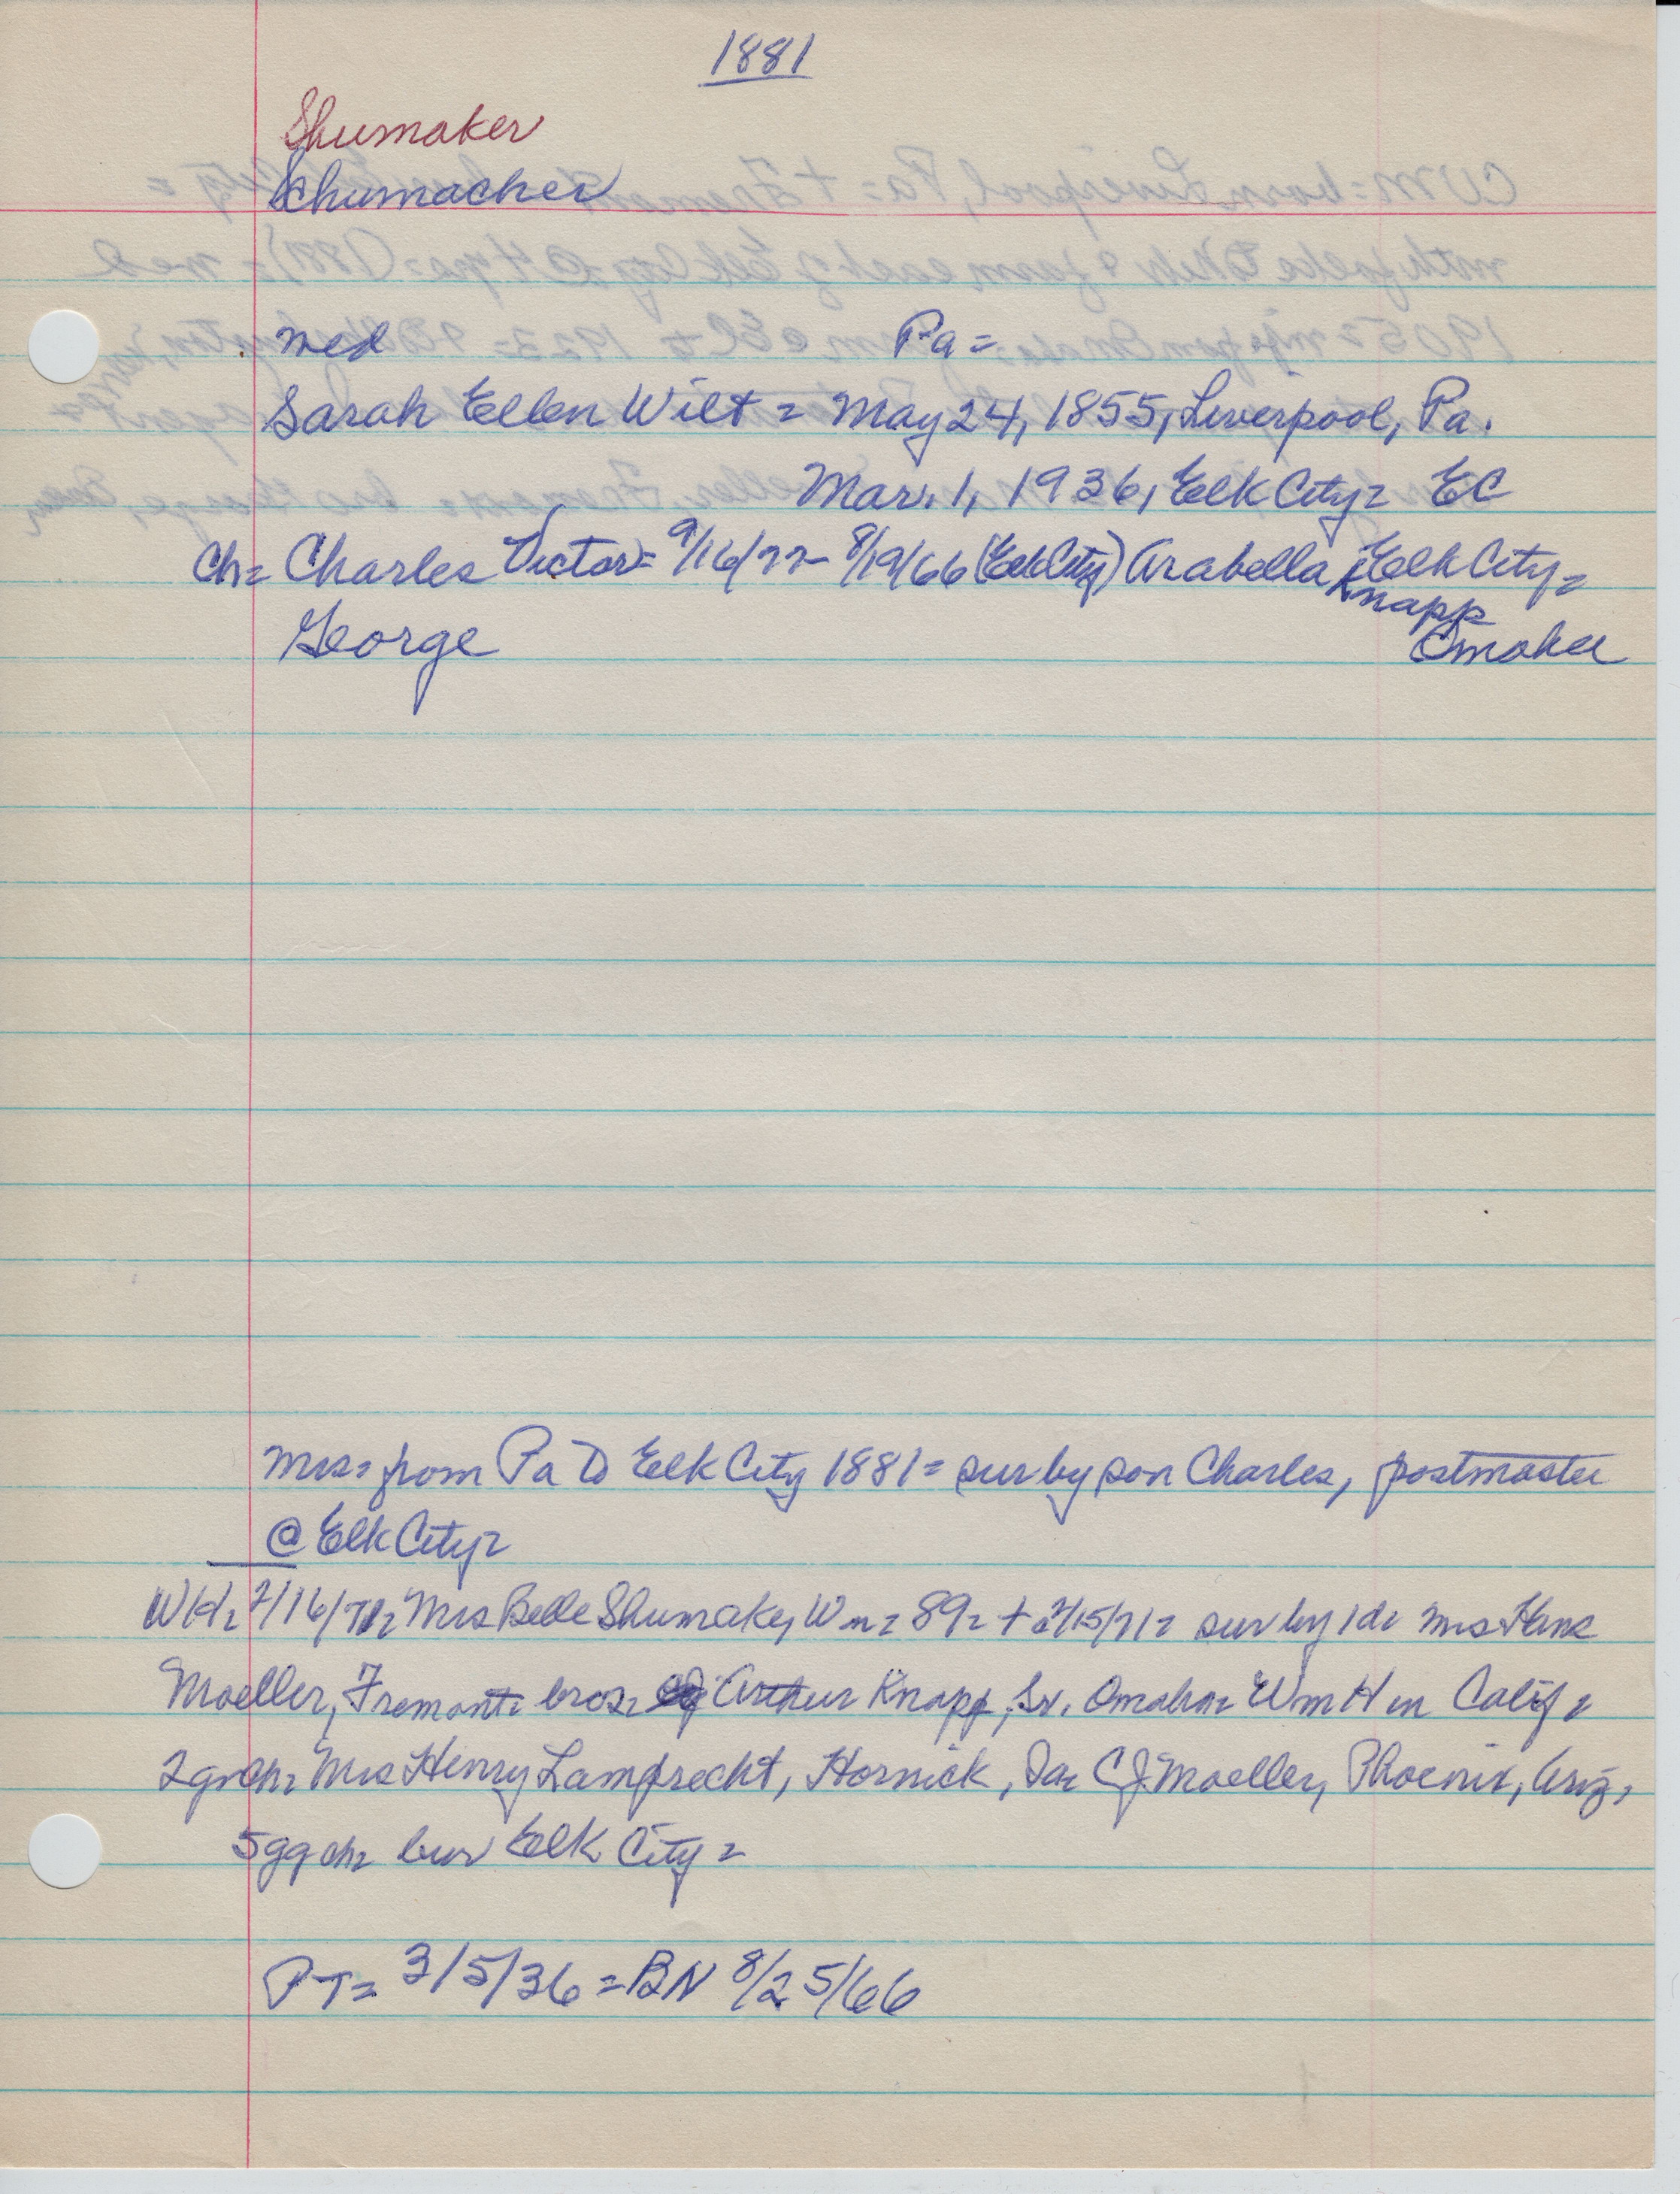 1881
Shumaker
Schumacher
med Pa =
Sarah Ellen Wilt = May 24, 1855, Liverpool, Pa.
Mar. 1, 1936, Elk City = EC
Ch = Charles Victor = 9/16/77 - 8/19/66 (Elk City) Arabella Knapp Elk City =
George Omaha
Mrs = from Pa to Elk City 1881 = sur by son Charles, postmaster
@ Elk City =
WH = 2/16/71 = Mrs Belle Shumaker, Wm = 89 = + 2/15/71 = sur by 1 d = Mrs Hans
Moeller, Fremont = bros = Arthur Knapp, Sr. Omaha = Wm H in Calif =
2 grch = Mrs Henry Lamprecht, Hornick, Ia = C J Moeller, Phoenix, Ariz,
5 gg ch = bur Elk City =
PT = 3/5/36 = BN 8/25/66